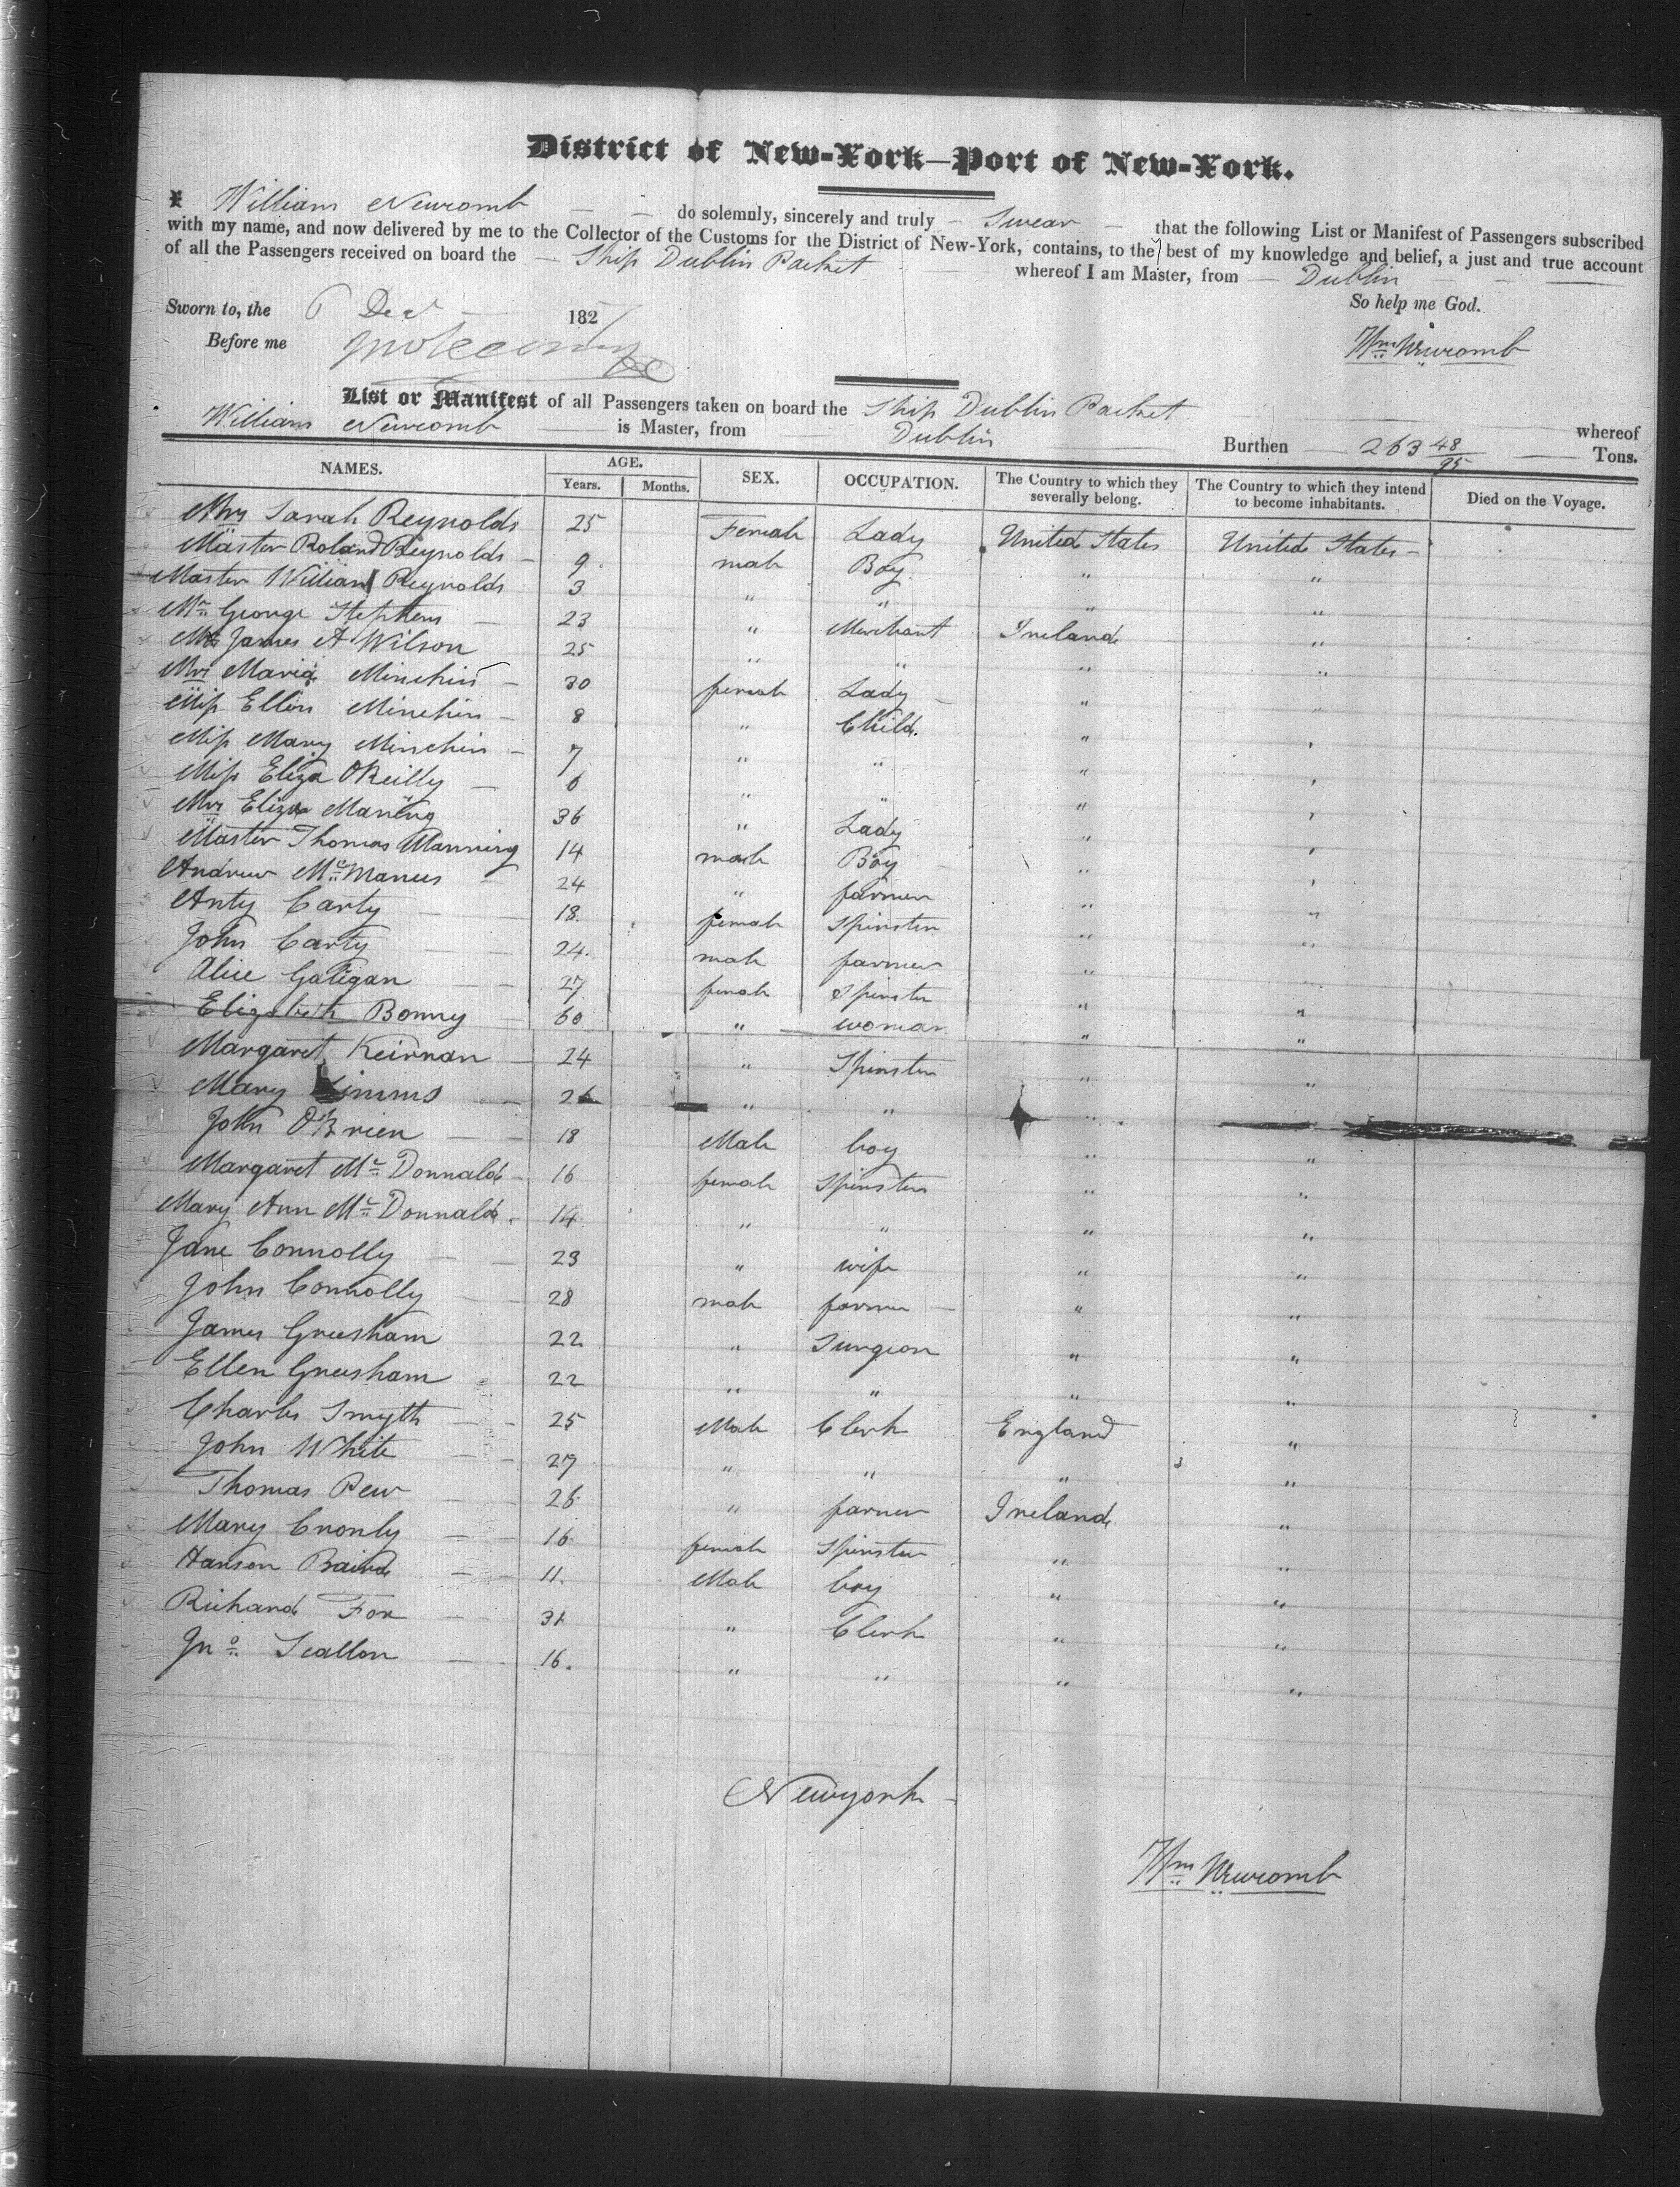 District of New-York—Port of New-York.
I William Newcomb do solemnly, sincerely and truly Swear that the following List or Manifest of Passengers subscribed
with my name, and now delivered by me to the Collector of the Customs for the District of New-York, contains, to the best of my knowledge and belief, a just and true account
of all the Passengers received on board the Ship Dublin Packet whereof I am Master, from Dublin
So help me God.
Sworn to, the 6 Dec 1827
Before me
Wm Newcomb
List or Manifest of all Passengers taken on board the Ship Dublin Packet whereof
William Newcomb is Master, from Dublin Burthen 263 48/95 Tons.
NAMES. AGE. Years. Months. SEX. OCCUPATION. The Country to which they severally belong. The Country to which they intend to become inhabitants. Died on the Voyage.
Mrs Sarah Reynolds 25 Female Lady United States United States
Master Roland Reynolds 9 male Boy " "
Master William Reynolds 3 " " " "
Mr George Stephens 23 " Merchant Ireland "
Mr James A Wilson 25 " " " "
Mrs Maria Minchin 30 female Lady " "
Miss Ellen Minchin 8 " Child. " "
Miss Mary Minchin 7 " " " "
Miss Eliza OReilly 6 " " " "
Mrs Eliza Manning 36 " Lady " "
Master Thomas Manning 14 male Boy " "
Andrew McManus 24 " farmer " "
Anty Carty 18 female Spinster " "
John Carty 24 male farmer " "
Alice Galigan 27 female Spinster " "
Elizabeth Bonny 60 " woman " "
Margaret Keirnan 24 " Spinster " "
Mary Simms " " " "
John O'Brien 18 Male boy " "
Margaret McDonnald 16 female Spinster " "
Mary Ann McDonnald 14 " " " "
Jane Connolly 23 " wife " "
John Connolly 28 male farmer " "
James Greesham 22 " Surgeon " "
Ellen Greesham 22 " " " "
Charles Smyth 25 Male Clerk England "
John White 27 " " " "
Thomas Pew 26 " farmer Ireland "
Mary Cronly 16 female Spinster " "
Hanson Baird 11 Male boy " "
Richard Fox 31 " Clerk " "
Jno Scallon 16 " " " "
Newyork
Wm Newcomb